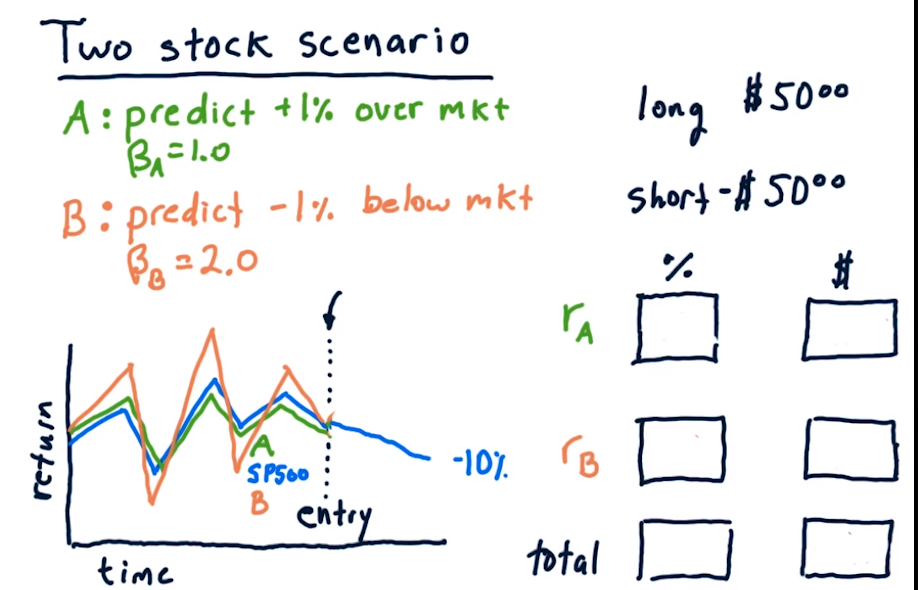 Two stock scenario
A: predict +1% over mkt
βA=1.0
B: predict -1% below mkt
βB=2.0
long $50⁰⁰
short -$50⁰⁰
% $
rA
rB
total
return
time
A
SP500
B
entry
-10%